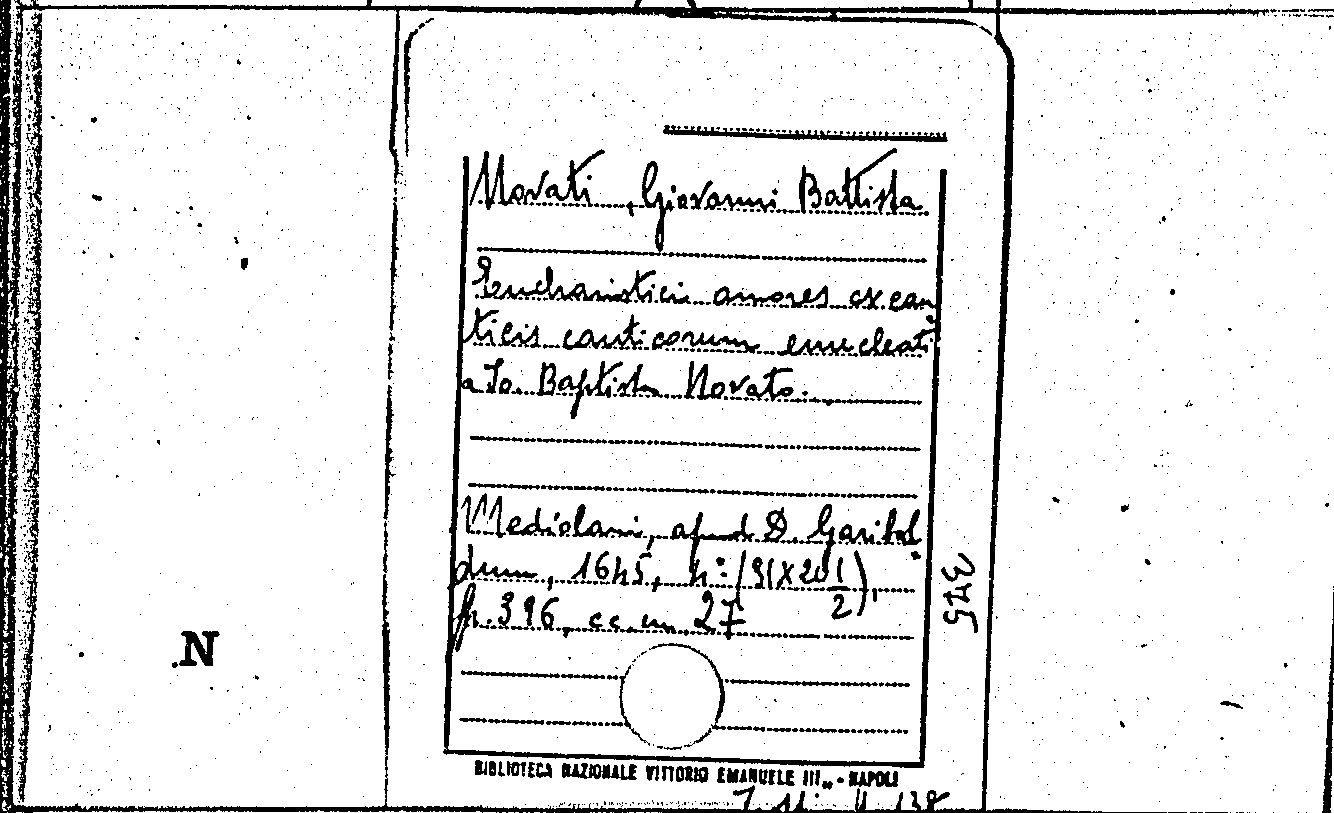 Novati, Giovanni Battista
Eucharistici amores ex can
ticis canticorum enucleati
a Jo. Baptista Novato.
Mediolani, apud D. Garibol
dum, 1645, 4°:
p. 396, cc. nn. 27
N
345
BIBLIOTECA NAZIONALE VITTORIO EMANUELE III„ - NAPOLI